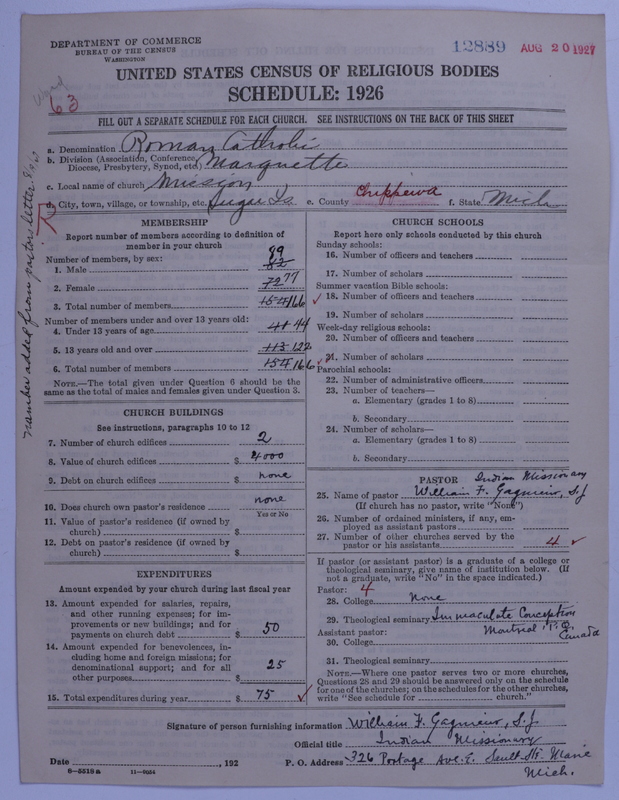 DEPARTMENT OF COMMERCE
BUREAU OF THE CENSUS
WASHINGTON
12889 AUG 20 1927
63
UNITED STATES CENSUS OF RELIGIOUS BODIES
SCHEDULE: 1926
FILL OUT A SEPARATE SCHEDULE FOR EACH CHURCH. SEE INSTRUCTIONS ON THE BACK OF THIS SHEET
a. Denomination Roman Catholic
b. Division (Association, Conference, Diocese, Presbytery, Synod, etc.) Marquette
c. Local name of church Mission
d. City, town, village, or township, etc. Sugar Is. e. County Chippewa f. State Mich
number added from pastors letter
MEMBERSHIP
Report number of members according to definition of
member in your church
Number of members, by sex:
1. Male 82 89
2. Female 72 77
3. Total number of members 154 166
Number of members under and over 13 years old:
4. Under 13 years of age 41 44
5. 13 years old and over 113 122
6. Total number of members 154 166
NOTE.—The total given under Question 6 should be the
same as the total of males and females given under Question 3.
CHURCH BUILDINGS
See instructions, paragraphs 10 to 12
7. Number of church edifices 2
8. Value of church edifices $ 4000
9. Debt on church edifices $ none
10. Does church own pastor's residence? none
Yes or No
11. Value of pastor's residence (if owned by
church) $
12. Debt on pastor's residence (if owned by
church) $
EXPENDITURES
Amount expended by your church during last fiscal year
13. Amount expended for salaries, repairs,
and other running expenses; for im-
provements or new buildings; and for
payments on church debt $ 50
14. Amount expended for benevolences, in-
cluding home and foreign missions; for
denominational support; and for all
other purposes $ 25
15. Total expenditures during year $ 75
CHURCH SCHOOLS
Report here only schools conducted by this church
Sunday schools:
16. Number of officers and teachers
17. Number of scholars
Summer vacation Bible schools:
18. Number of officers and teachers
19. Number of scholars
Week-day religious schools:
20. Number of officers and teachers
21. Number of scholars
Parochial schools:
22. Number of administrative officers
23. Number of teachers—
a. Elementary (grades 1 to 8)
b. Secondary
24. Number of scholars—
a. Elementary (grades 1 to 8)
b. Secondary
PASTOR Indian Missionary
25. Name of pastor William F. Gagnieur, S.J
(If church has no pastor, write "None")
26. Number of ordained ministers, if any, em-
ployed as assistant pastors
27. Number of other churches served by the
pastor or his assistants 4
If pastor (or assistant pastor) is a graduate of a college or
theological seminary, give name of institution below. (If
not a graduate, write "No" in the space indicated.)
Pastor: 4
28. College None
29. Theological seminary Immaculate Conception
Assistant pastor: Montreal P.Q. Canada
30. College
31. Theological seminary
NOTE.—Where one pastor serves two or more churches,
Questions 28 and 29 should be answered only on the schedule
for one of the churches; on the schedules for the other churches,
write "See schedule for church."
Signature of person furnishing information William F. Gagnieur, S.J.
Official title Indian Missionary
Date , 192 P. O. Address 326 Portage Ave. E. Sault Ste Marie
Mich.
8-5518a 11-9054